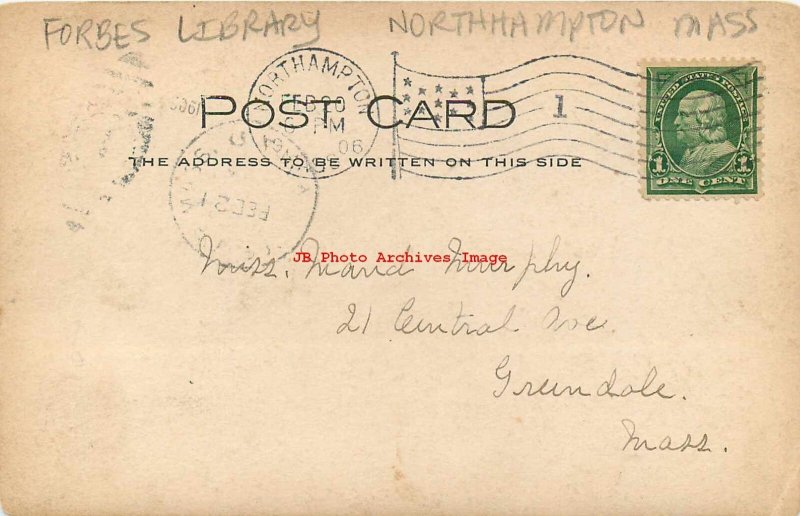 FORBES LIBRARY NORTHHAMPTON MASS
NORTHAMPTON
FEB 20
PM
06
1
POST CARD
THE ADDRESS TO BE WRITTEN ON THIS SIDE
UNITED STATES POSTAGE
1 1
ONE CENT
FEB 21
JB Photo Archives Image
Miss. Maud Murphy.
21 Central Ave.
Greendale.
Mass.